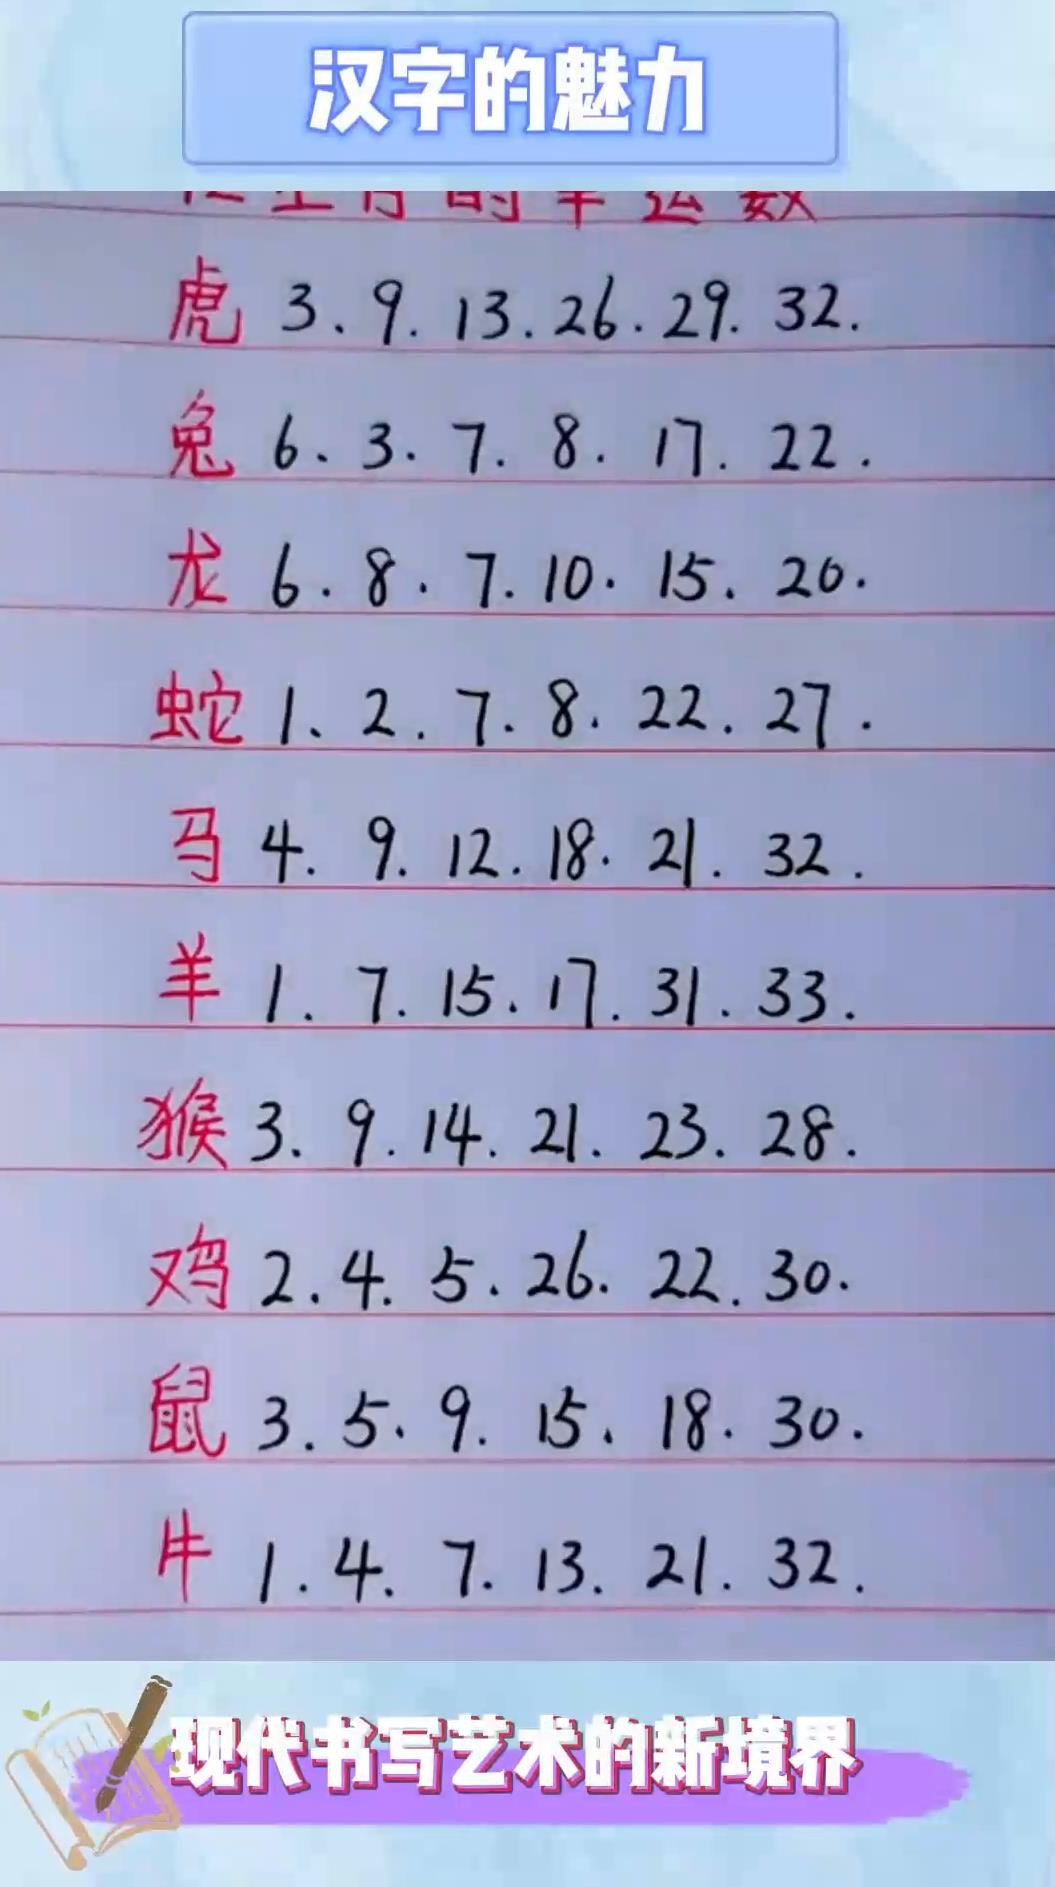 汉字的魅力
生肖的幸运数
虎 3、9.13.26.29.32.
兔 6、3.7.8.17.22.
龙 6.8.7.10.15.20.
蛇 1、2.7.8.22.27.
马 4.9.12.18.21.32.
羊 1.7.15.17.31.33.
猴 3.9.14.21.23.28.
鸡 2.4.5.26.22.30.
鼠 3.5、9.15、18.30.
牛 1.4.7.13.21.32.
现代书写艺术的新境界